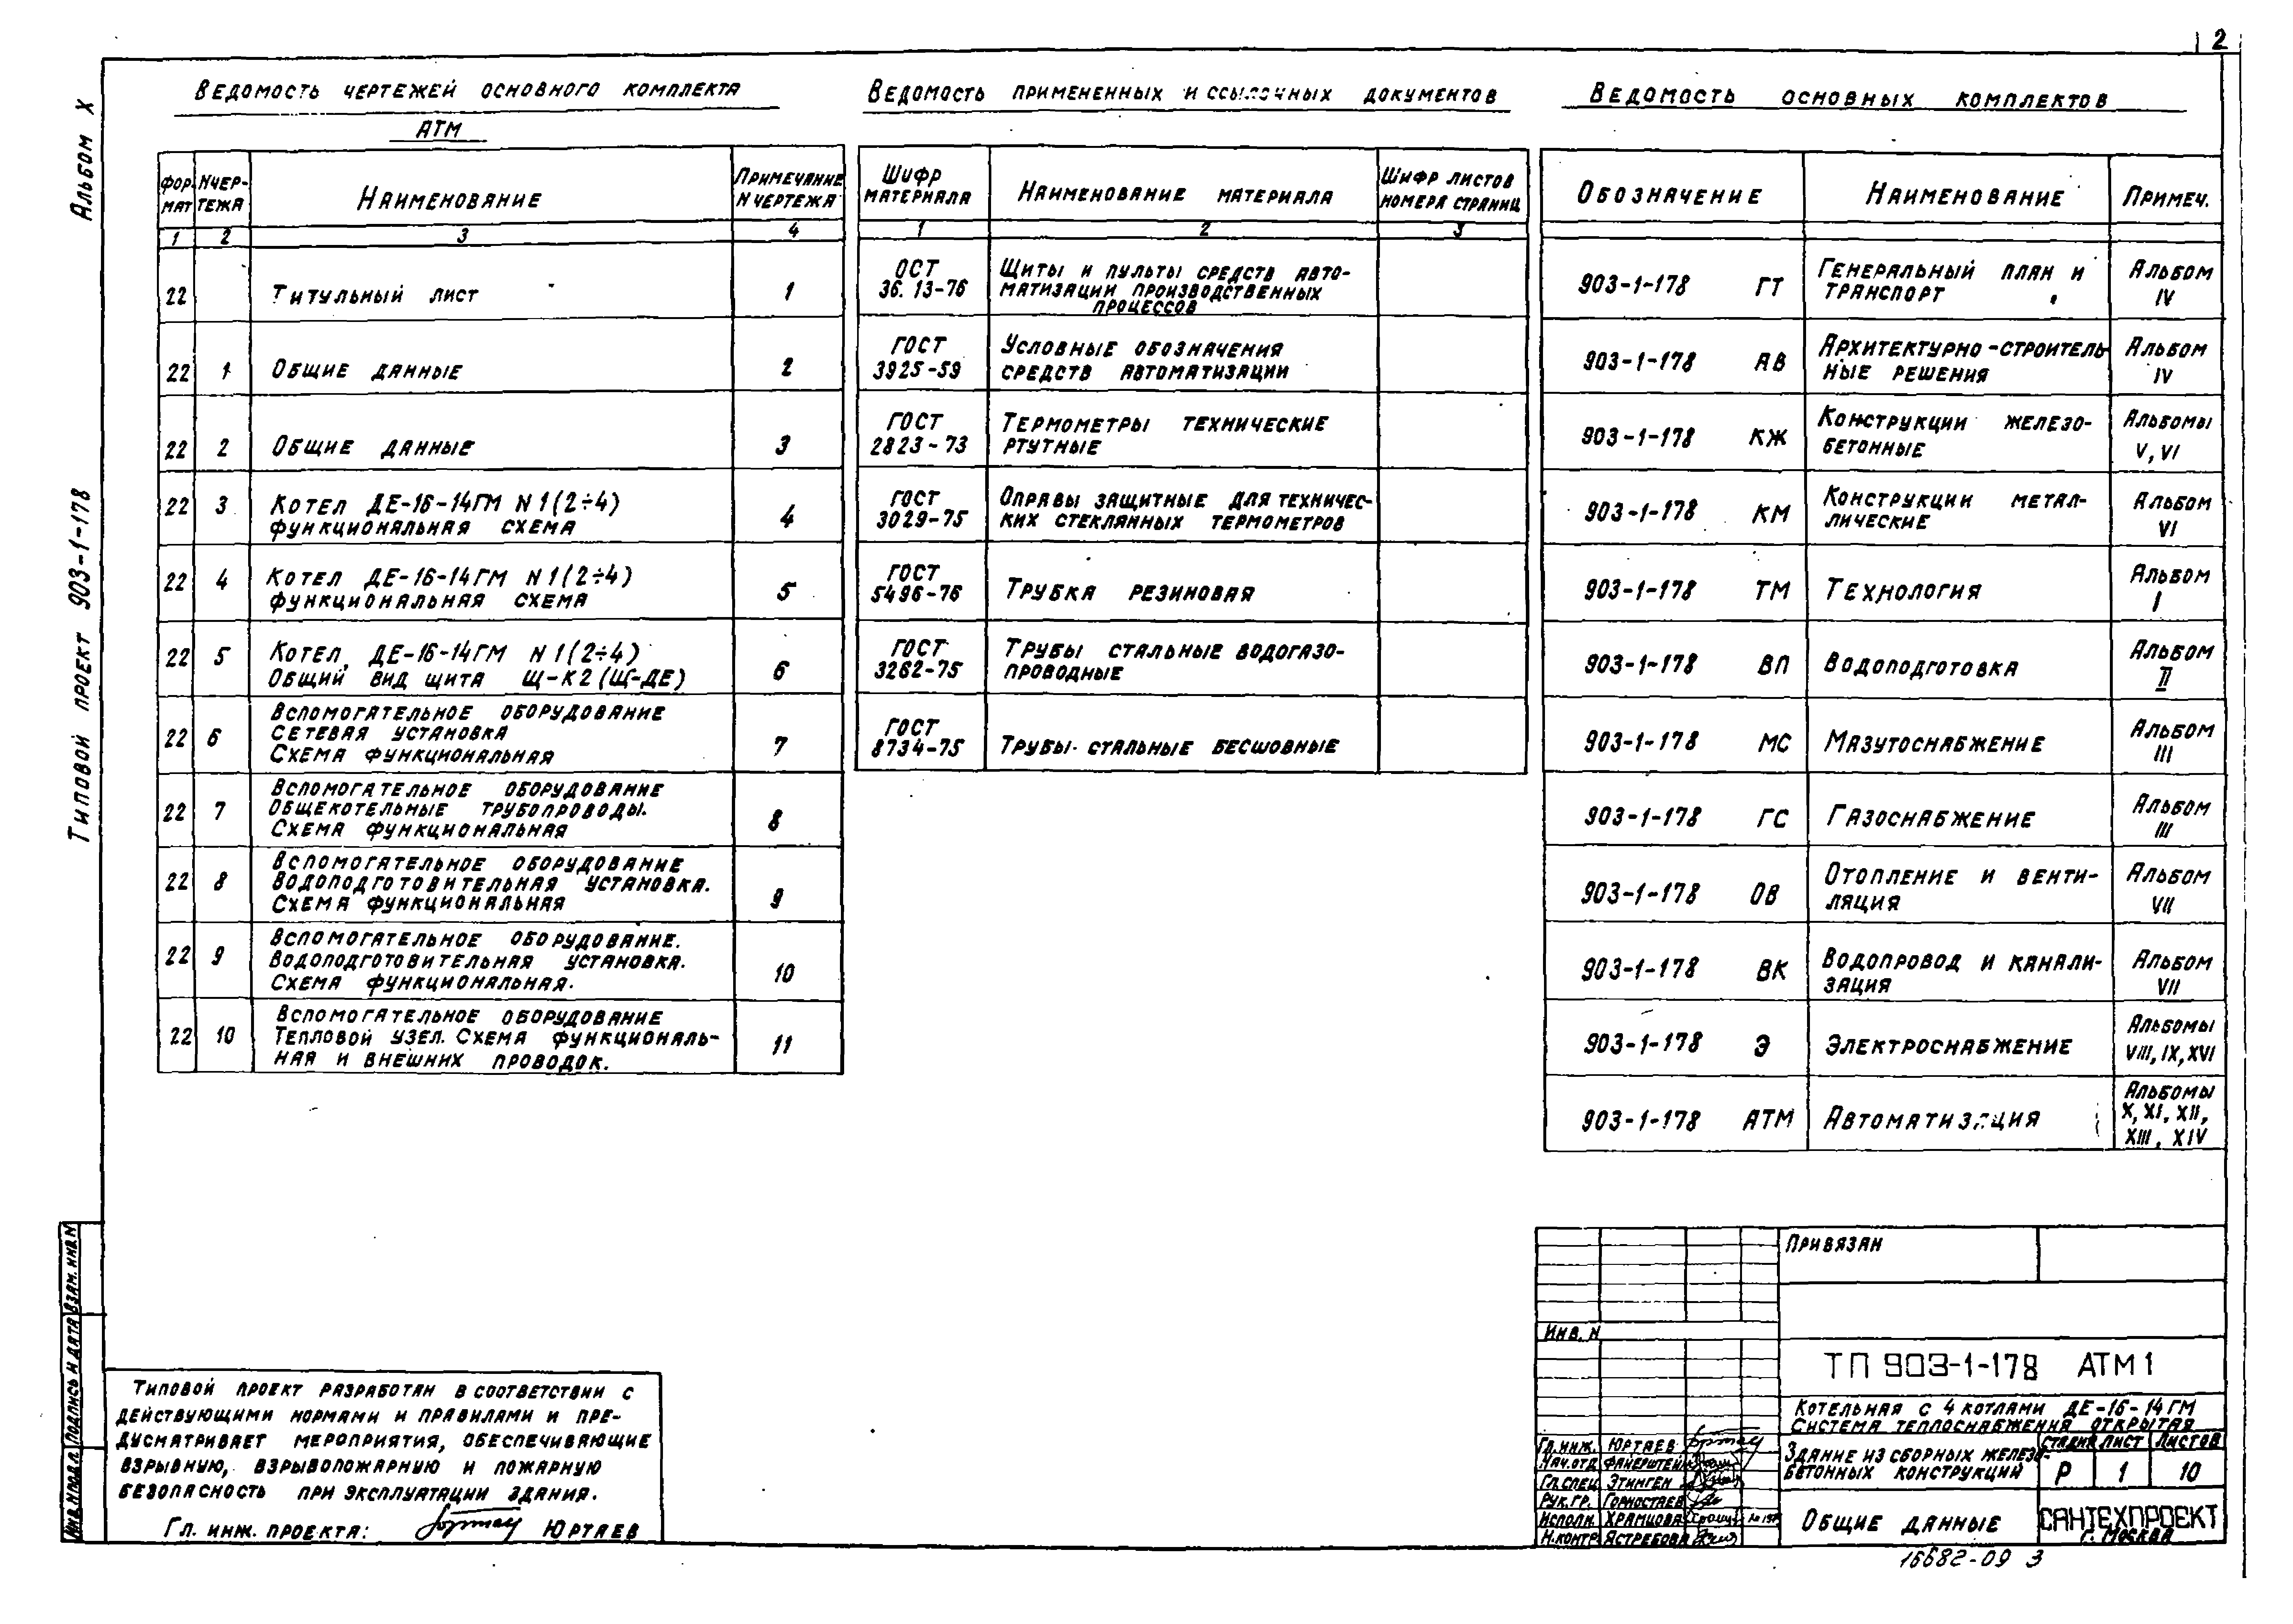 2
Альбом X
Типовой проект 903-1-178
Ведомость чертежей основного комплекта
АТМ
Фор-мат | N чер-тежа | Наименование | Примечание N чертежа
1 | 2 | 3 | 4
22 | | Титульный лист | 1
22 | 1 | Общие данные | 2
22 | 2 | Общие данные | 3
22 | 3 | Котел ДЕ-16-14ГМ N1(2÷4)
функциональная схема | 4
22 | 4 | Котел ДЕ-16-14ГМ N1(2÷4)
функциональная схема | 5
22 | 5 | Котел ДЕ-16-14ГМ N1(2÷4)
Общий вид щита Щ-К2(Щ-ДЕ) | 6
22 | 6 | Вспомогательное оборудование
Сетевая установка
Схема функциональная | 7
22 | 7 | Вспомогательное оборудование
Общекотельные трубопроводы.
Схема функциональная | 8
22 | 8 | Вспомогательное оборудование
Водоподготовительная установка.
Схема функциональная | 9
22 | 9 | Вспомогательное оборудование.
Водоподготовительная установка.
Схема функциональная. | 10
22 | 10 | Вспомогательное оборудование
Тепловой узел. Схема функциональ-
ная и внешних проводок. | 11
Ведомость примененных и ссылочных документов
Шифр материала | Наименование материала | Шифр листов номера страниц
1 | 2 | 3
ОСТ 36.13-76 | Щиты и пульты средств авто-
матизации производственных
процессов
ГОСТ 3925-59 | Условные обозначения
средств автоматизации
ГОСТ 2823-73 | Термометры технические
ртутные
ГОСТ 3029-75 | Оправы защитные для техничес-
ких стеклянных термометров
ГОСТ 5496-76 | Трубка резиновая
ГОСТ 3262-75 | Трубы стальные водогазо-
проводные
ГОСТ 8734-75 | Трубы стальные бесшовные
Ведомость основных комплектов
Обозначение | Наименование | Примеч.
903-1-178 ГТ | Генеральный план и
транспорт | Альбом IV
903-1-178 АВ | Архитектурно-строитель
ные решения | Альбом IV
903-1-178 КЖ | Конструкции железо-
бетонные | Альбомы V, VI
903-1-178 КМ | Конструкции метал-
лические | Альбом VI
903-1-178 ТМ | Технология | Альбом I
903-1-178 ВП | Водоподготовка | Альбом II
903-1-178 МС | Мазутоснабжение | Альбом III
903-1-178 ГС | Газоснабжение | Альбом III
903-1-178 ОВ | Отопление и венти-
ляция | Альбом VII
903-1-178 ВК | Водопровод и канали-
зация | Альбом VII
903-1-178 Э | Электроснабжение | Альбомы VIII, IX, XVI
903-1-178 АТМ | Автоматизация | Альбомы X, XI, XII, XIII, XIV
Инв. N подл. | Подпись и дата | Взам. инв. N
Типовой проект разработан в соответствии с
действующими нормами и правилами и пре-
дусматривает мероприятия, обеспечивающие
взрывную, взрывопожарную и пожарную
безопасность при эксплуатации здания.
Гл. инж. проекта: Юртаев
Привязан
Инв. N
ТП 903-1-178 АТМ1
Котельная с 4 котлами ДЕ-16-14ГМ
Система теплоснабжения открытая
Гл. инж. Юртаев
Нач. отд. Файерштейн
Гл. спец. Этинген
Рук. гр. Горностаев
Исполн. Храмцова
Н. контр. Ястребова
Здание из сборных железо-
бетонных конструкций
Стадия | Лист | Листов
Р | 1 | 10
Общие данные
САНТЕХПРОЕКТ
г. Москва
16682-09 3